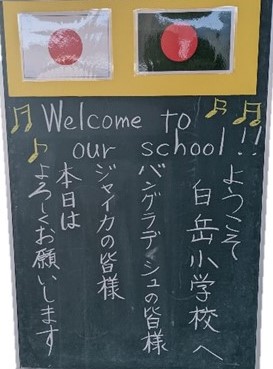 Welcome to
our school!!
ようこそ
白岳小学校へ
バングラデシュの皆様
ジャイカの皆様
本日は
よろしくお願いします